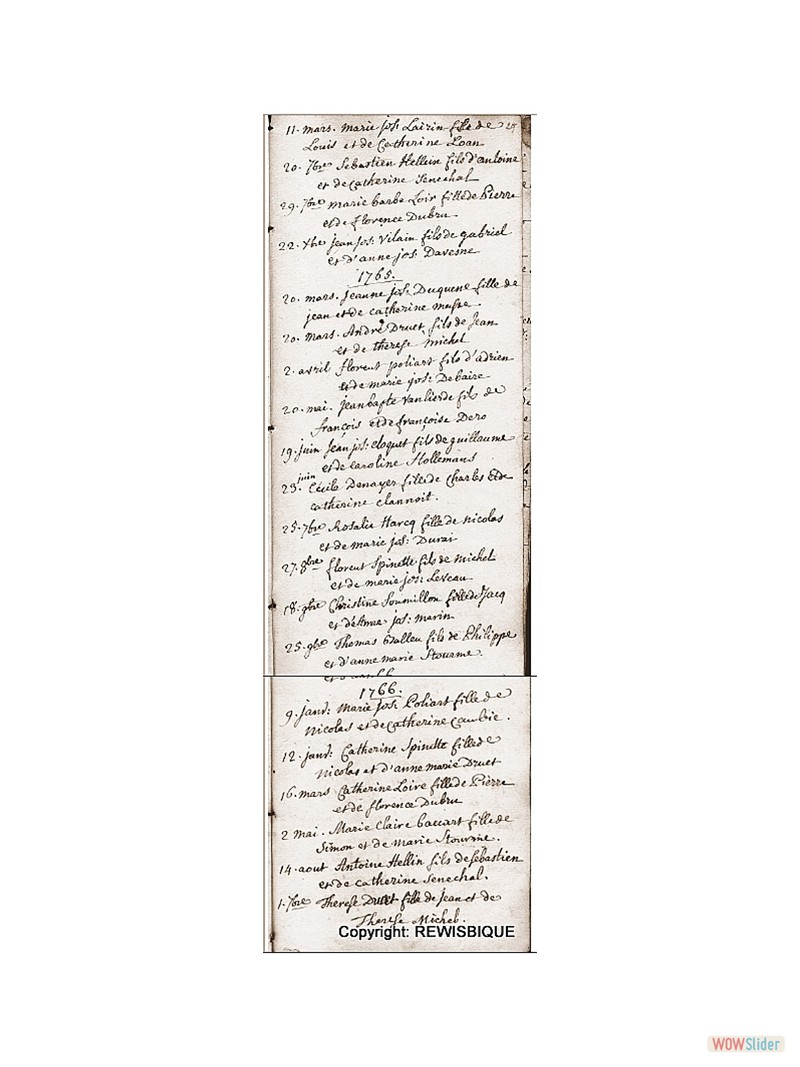 11. mars. marie jos: Lairin fille de
Louis et de Catherine Loan
20. 7bre Sebastien Hellein fils d'antoine
et de Catherine Senechal
29. 7bre marie barbe Loir fille de Pierre
et de florence Dubru
22. Xbre jean jos: Vilain fils de gabriel
et d'anne jos: Davesne
1765.
20. mars. jeanne jos: Duquene fille de
jean et de catherine
20. mars. André Druet fils de Jean
et de therese michel
2. avril florent poliart fils d'adrien
et de marie jos: Debaise
20. mai. jean bapte vanlierde fils de
françois et de françoise Dero
19. juin jean jos: cloquet fils de guillaume
et de caroline Hollemans
juin
23. Cécile Denayer fille de Charles et de
catherine clannoit.
25. 7bre Rosalie Harcq fille de nicolas
et de marie jos: Durai
27. 8bre florent Spinette fils de michel
et de marie jos: Leveau
18. 9bre Christine Soumillon fille de Jacq
et d'Anne jos: marin
25. 9bre Thomas Walleu fils de Philippe
et d'anne marie Stourme.
1766.
9. janv: Marie jos: Poliart fille de
Nicolas et de Catherine Cambie.
12. janv: Catherine Spinette fille de
Nicolas et d'anne marie Druet
16. mars Catherine Loire fille de Pierre
et de florence Dubru
2 mai. Marie Claire baccart fille de
Simon et de marie Stourme.
14. aout Antoine Hellin fils de sebastien
et de catherine Senechal.
1. 7bre Therese Druet fille de jean et de
Therese Michel.
Copyright: REWISBIQUE
WOWSlider